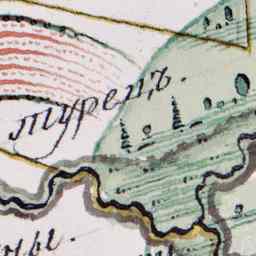 турецъ.
ны.